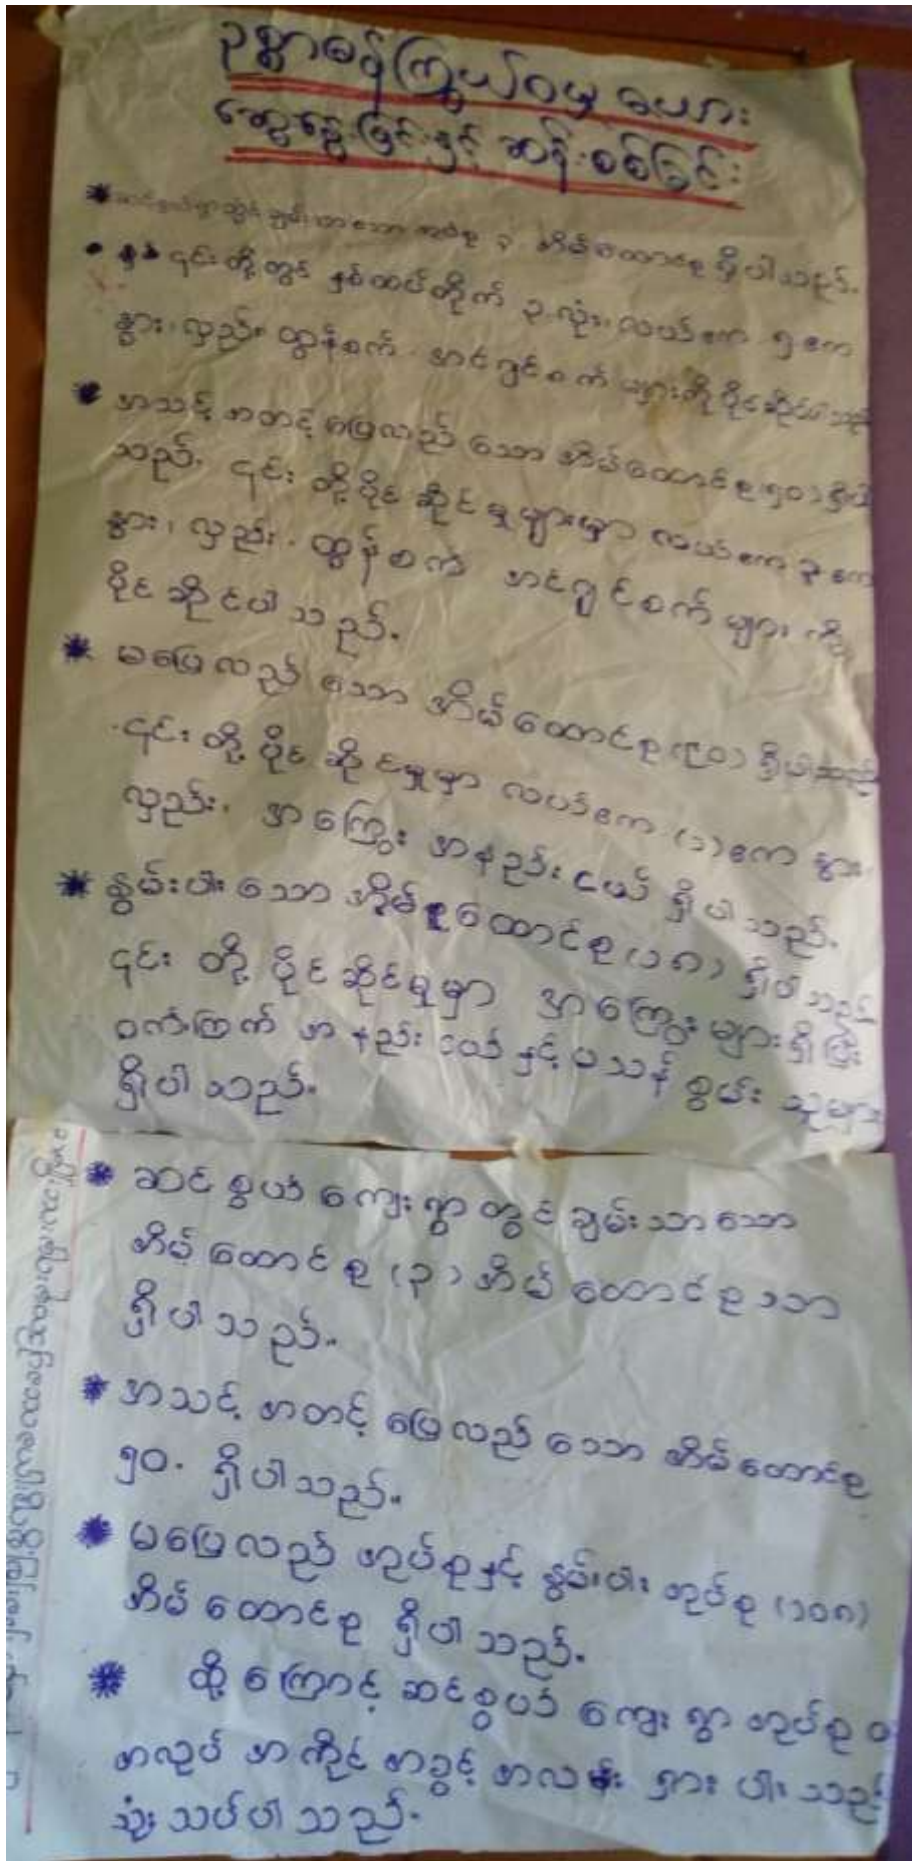 ဥစ္စာဓန ကြွယ်ဝမှု အား
ဆွေးနွေးခြင်းနှင့် ဆန်းစစ်ခြင်း
* ဆင်စွယ်ရွာတွင် ချမ်းသာသော အုပ်စု ၃ အိမ်ထောင်စု ရှိပါသည်။
၎င်းတို့တွင် နှစ်ထပ်တိုက် ၃ လုံး၊ လယ်ဧက ၅ ဧက
နွား၊ လှည်း ထွန်စက် အင်ဂျင်စက် များကိုပိုင်ဆိုင်ပါသည်
* အသင့် အတင့် ပြေလည် သော အိမ်ထောင်စု (၅၀) ရှိပါ
သည်. ၎င်း တို့ပိုင် ဆိုင်မှုများမှာ လယ်ဧက ၃ ဧက
နွား၊ လှည်း. ထွန်စက် အင်ဂျင်စက် များ ကို
ပိုင် ဆိုင်ပါ သည်.
* မပြေလည် သော အိမ်ထောင်စု (၉၀) ရှိပါသည်
၎င်း တို့ ပိုင် ဆိုင်မှုမှာ လယ်ဧက (၁) ဧက နွား
လှည်း. အကြွေး အနည်း ငယ် ရှိပါသည်.
* နွမ်းပါး သော အိမ်စုထောင်စု (၁၈) ရှိပါသည်
၎င်း တို့ ပိုင်ဆိုင်မှုမှာ အကြွေး များရှိပြီး
ဝက်၊ ကြက် အ နည်း ငယ် နှင့် မသန် စွမ်း သူများ
ရှိပါ သည်.
* ဆင် စွယ် ကျေးရွာ တွင် ချမ်းသာ သော
အိမ် ထောင် စု (၃) အိမ် ထောင် စု သာ
ရှိပါ သည်။
* အသင့် အတင့် ပြေလည် သော အိမ်ထောင်စု
၅၀. ရှိပါသည်။
* မပြေလည် အုပ်စုနှင့် နွမ်းပါး အုပ်စု (၁၀၈)
အိမ် ထောင်စု ရှိပါ သည်.
* ထို့ ကြောင့် ဆင်စွယ် ကျေး ရွာ အုပ်စု
အလုပ် အကိုင် အခွင့် အလမ်း ရှား ပါး သည်
သုံး သပ်ပါ သည်.